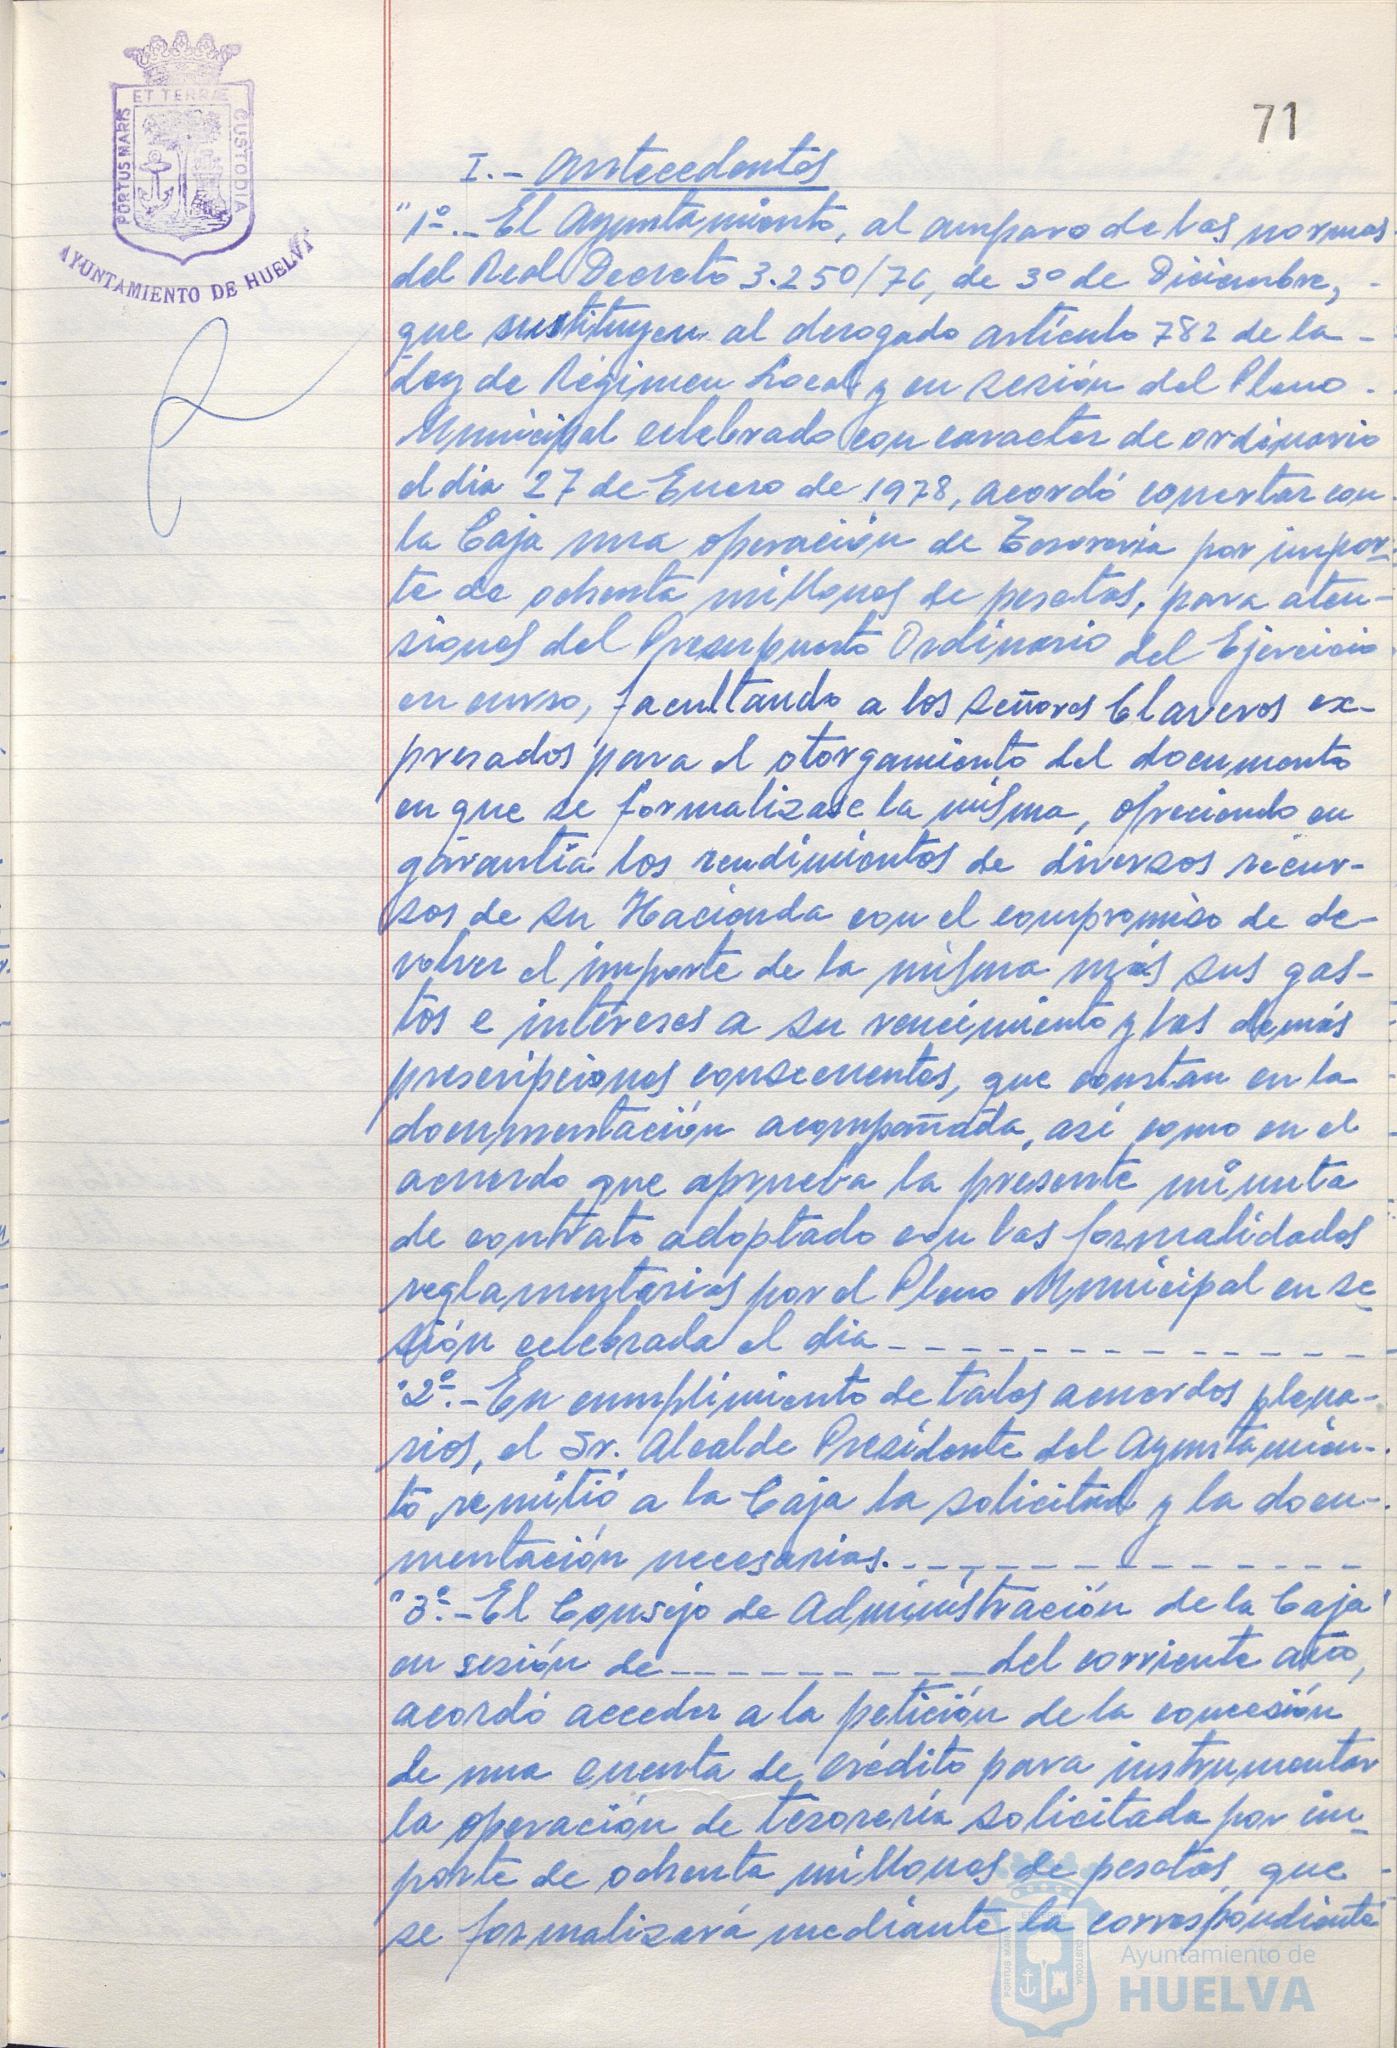 ET TERRÆ
PORTUS MARIS
CUSTODIA
AYUNTAMIENTO DE HUELVA
71
I.- Antecedentes
"1º.- El Ayuntamiento, al amparo de las normas
del Real Decreto 3.250/76, de 30 de Diciembre, -
que sustituyen al derogado artículo 782 de la -
Ley de Régimen Local y en sesión del Pleno -
Municipal celebrado con caracter de ordinario
el dia 27 de Enero de 1978, acordó concertar con
la Caja una operación de Tesorería por impor-
te de ochenta millones de pesetas, para aten-
siones del Presupuesto Ordinario del Ejercicio
en curso, facultando a los señores Claveros ex-
presados para el otorgamiento del documento
en que se formalizase la misma, ofreciendo en
garantía los rendimientos de diversos recur-
sos de su Hacienda con el compromiso de de-
volver el importe de la misma más sus gas-
tos e intereses a su vencimiento y las demás
prescripciones consecuentes, que constan en la
documentación acompañada, así como en el
acuerdo que aprueba la presente minuta
de contrato adoptado con las formalidades
reglamentarias por el Pleno Municipal en se-
sión celebrada el dia - - - - - - - - - - - -
"2º.- En cumplimiento de tales acuerdos plena-
rios, el Sr. Alcalde Presidente del Ayuntamien-
to remitió a la Caja la solicitud y la docu-
mentación necesarias. - - - - - - - - - - - -
"3º.- El Consejo de Administración de la Caja
en sesión de - - - - - - - - - del corriente año,
acordó acceder a la petición de la concesión
de una cuenta de crédito para instrumentar
la operación de tesorería solicitada por im-
porte de ochenta millones de pesetas que -
se formalizará mediante la correspondiente
Ayuntamiento de
HUELVA